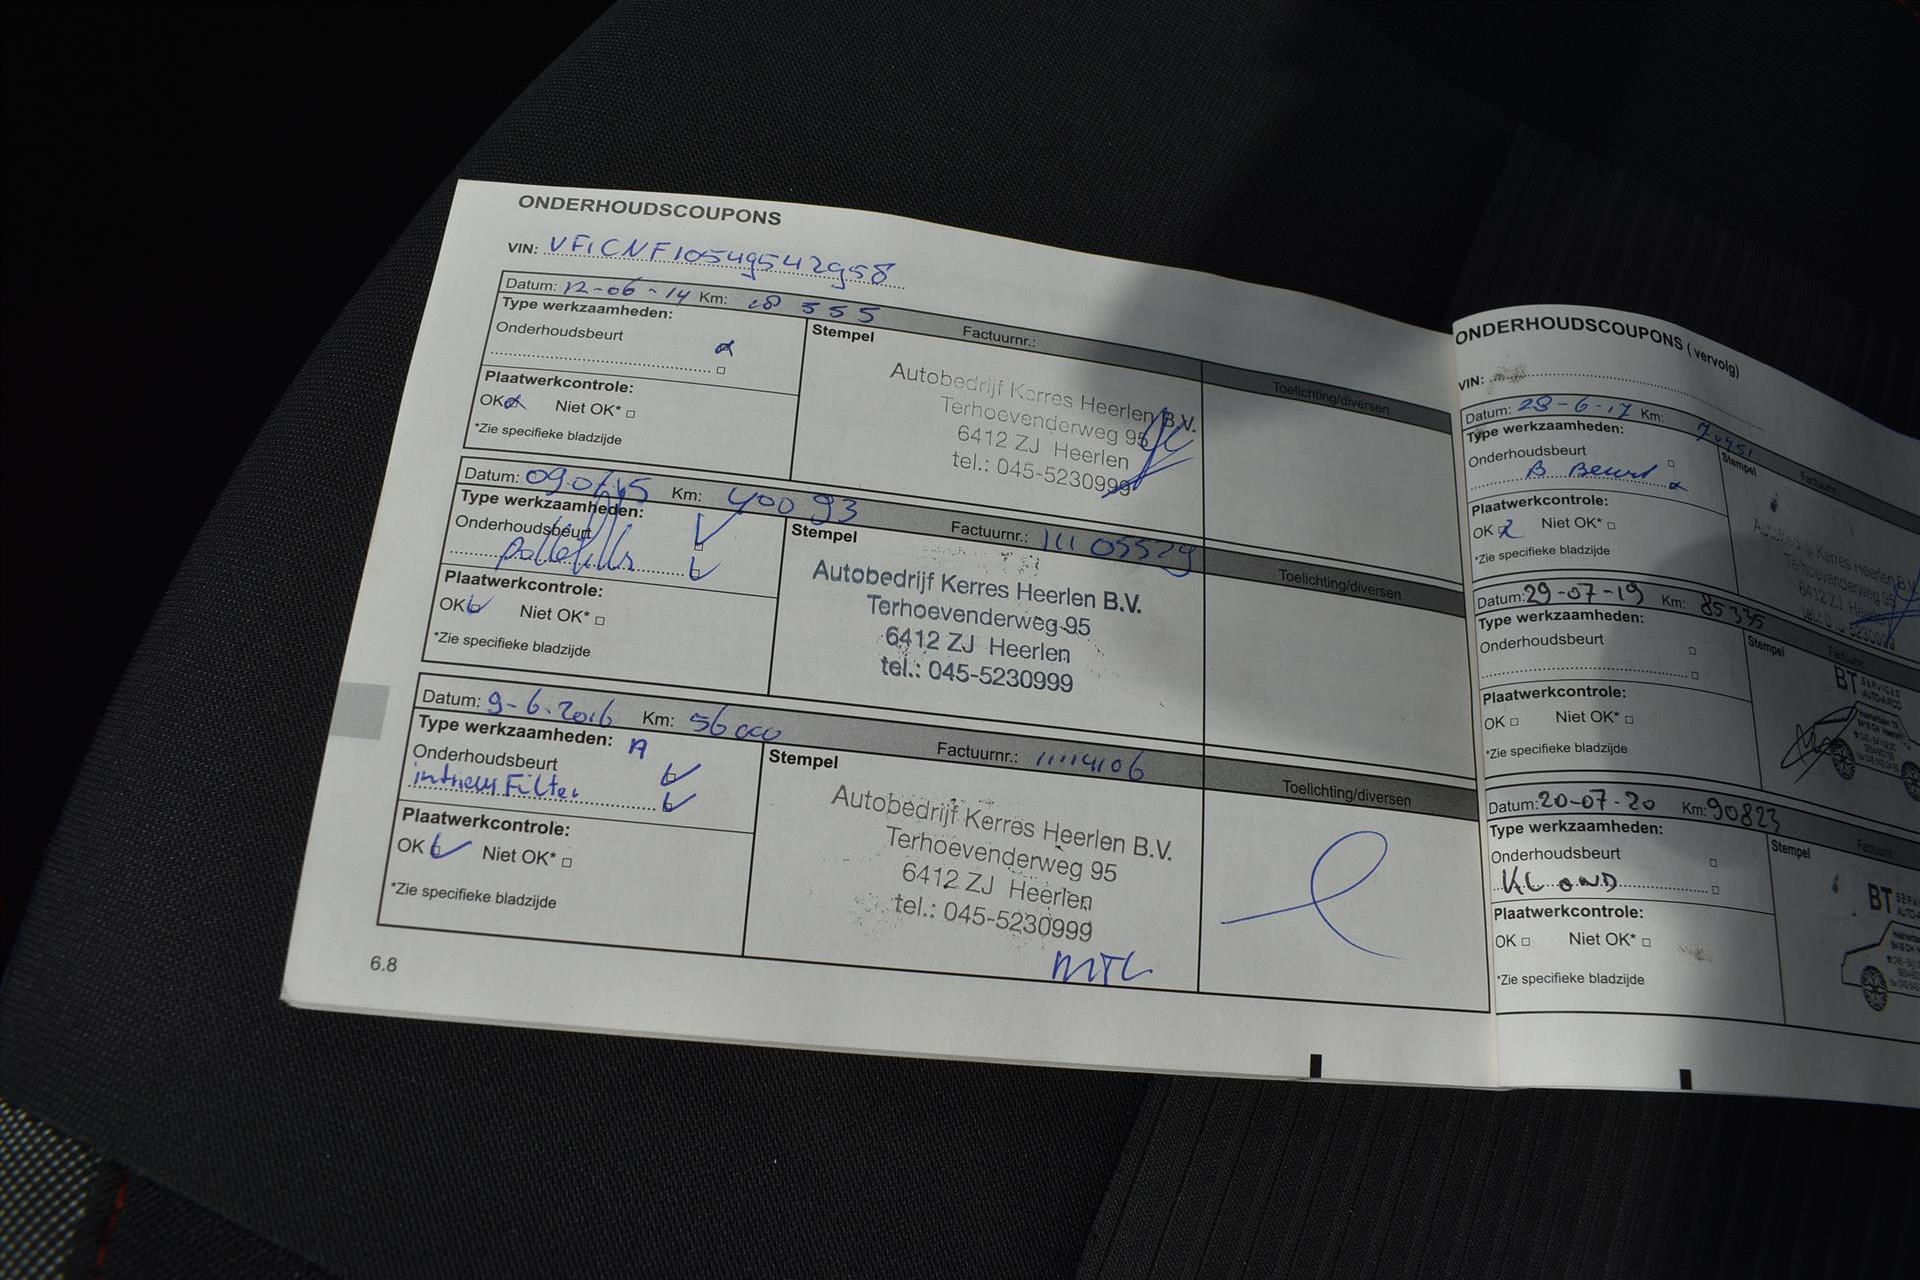 ONDERHOUDSCOUPONS
VIN: VF1CNF10549542958
Datum: 12-06-14 Km: 18 555 Factuurnr.:
Type werkzaamheden:
Stempel
Toelichting/diversen
Onderhoudsbeurt
Plaatwerkcontrole:
OK Niet OK*
*Zie specifieke bladzijde
Autobedrijf Kerres Heerlen B.V.
Terhoevenderweg 95
6412 ZJ Heerlen
tel.: 045-5230999
Datum: Km: 40093 Factuurnr.: 11105529
Type werkzaamheden:
Stempel
Toelichting/diversen
Onderhoudsbeurt
Plaatwerkcontrole:
OK Niet OK*
*Zie specifieke bladzijde
Autobedrijf Kerres Heerlen B.V.
Terhoevenderweg 95
6412 ZJ Heerlen
tel.: 045-5230999
Datum: 9-6-2016 Km: 56000 Factuurnr.: 11114106
Type werkzaamheden: A
Stempel
Toelichting/diversen
Onderhoudsbeurt
Filter
Plaatwerkcontrole:
OK Niet OK*
*Zie specifieke bladzijde
Autobedrijf Kerres Heerlen B.V.
Terhoevenderweg 95
6412 ZJ Heerlen
tel.: 045-5230999
6.8
ONDERHOUDSCOUPONS (vervolg)
VIN:
Datum: Km: Factuurnr.:
Type werkzaamheden:
Stempel
Onderhoudsbeurt
B Beurt
Plaatwerkcontrole:
OK Niet OK*
*Zie specifieke bladzijde
Autobedrijf Kerres Heerlen B.V.
Terhoevenderweg 95
6412 ZJ Heerlen
Datum: 29-07-19 Km: 85335
Type werkzaamheden:
Stempel
Onderhoudsbeurt
Plaatwerkcontrole:
OK Niet OK*
*Zie specifieke bladzijde
BT SERVICES
AUTO-AIRCO
Datum: 20-07-20 Km: 90823
Type werkzaamheden:
Stempel
Onderhoudsbeurt
KL OND
Plaatwerkcontrole:
OK Niet OK*
*Zie specifieke bladzijde
BT